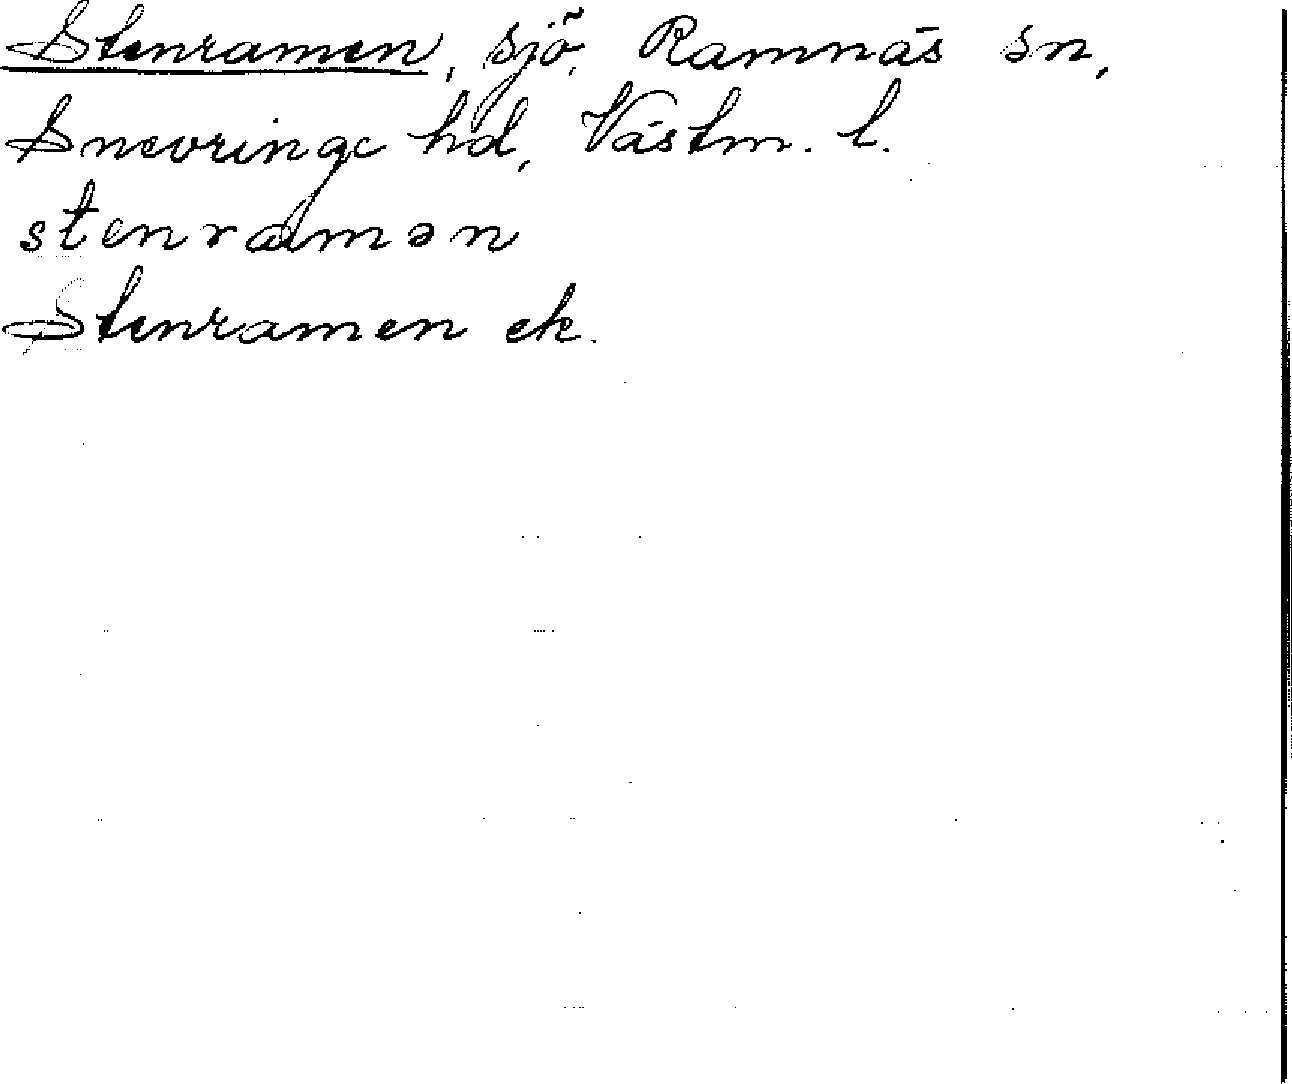 Stenramen, sjö, Ramnäs sn,
Snevringe hd, Västm. l.
stenramən
Stenramen ek.